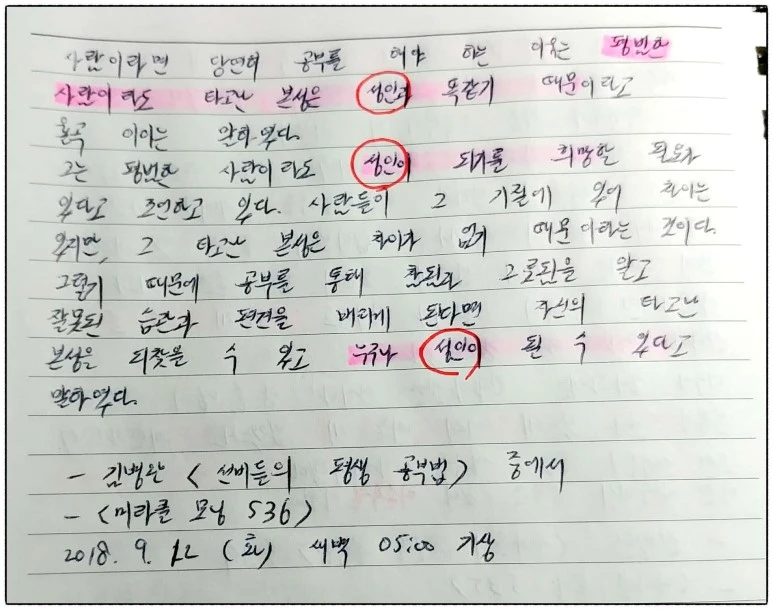 사람이라면 당연히 공부를 해야 하는 이유는 평범한
사람이라도 타고난 본성은 성인과 똑같기 때문이라고
율곡 이이는 말하였다.
그는 평범한 사람이라도 성인이 되기를 희망할 필요가
있다고 조언하고 있다. 사람들이 그 기질에 있어 차이는
있지만, 그 타고난 본성은 차이가 없기 때문이라는 것이다.
그렇기 때문에 공부를 통해 참됨과 그릇됨을 알고
잘못된 습관과 편견을 버리게 된다면 자신의 타고난
본성을 되찾을 수 있고 누구나 성인이 될 수 있다고
말하였다.
- 김병완 <선비들의 평생 공부법> 중에서
- <미라클 모닝 536>
2018. 9. 12 (수) 새벽 05:00 기상